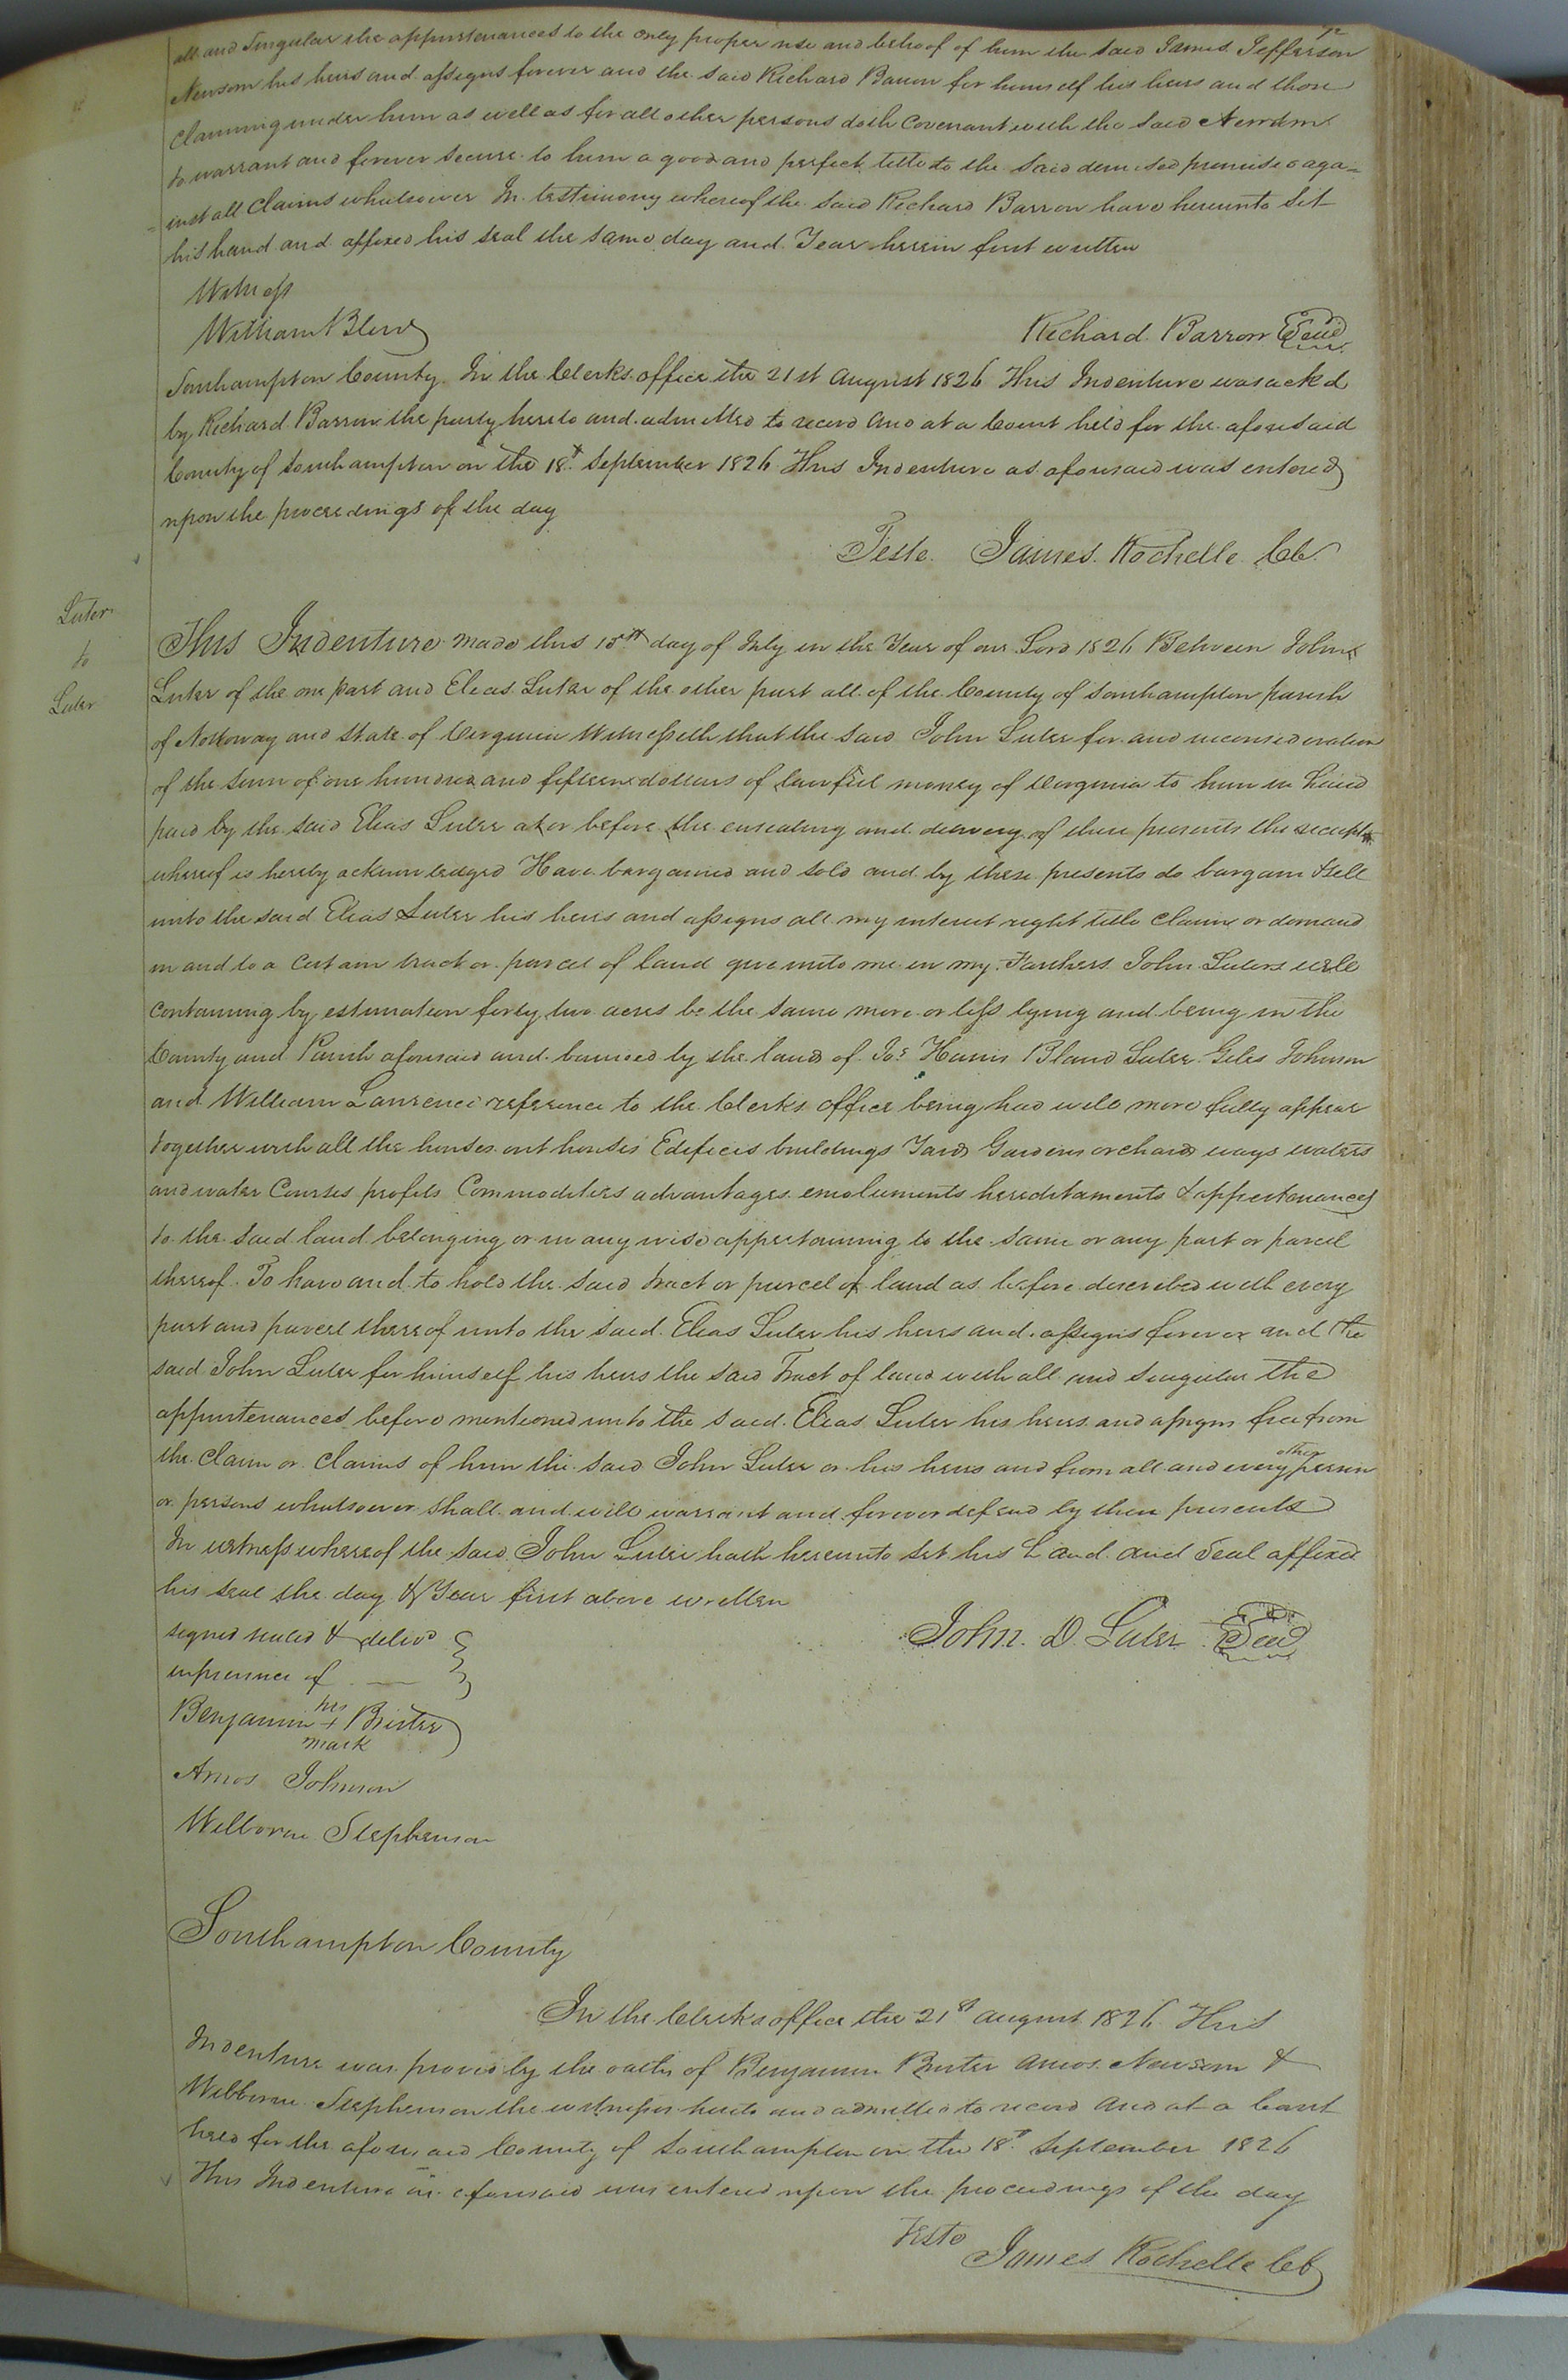 all and Singular the appurtenances to the only proper use and behoof of him the said James Jefferson
Newsom his heirs and assigns forever and the said Richard Barron for himself his heirs and those
Claiming under him as well as for all other persons doth Covenant with the said Newsom
to warrant and forever secure to him a good and perfect title to the said demised premises aga=
=inst all Claims whatsoever In testimony whereof the said Richard Barron have hereunto Set
his hand and affixed his seal the same day and Year herein first written
Witness
William
Richard Barron Seal
Southampton County In the Clerks office the 21st August 1826 This Indenture was ackd
by Richard Barron the party hereto and admitted to record And at a Court held for the aforesaid
County of Southampton on the 18t September 1826 This Indenture as aforesaid was entered
upon the proceedings of the day
Teste James Rochelle Clk
Luter
to
Luter
This Indenture made this 15th day of July in the Year of our Lord 1826 Between John
Luter of the one part and Elias Luter of the other part all of the County of Southampton parish
of Nottoway and State of Virginia Witnesseth that the said John Luter for and inconsideration
of the sum of one hundred and fifteen dollars of lawful money of Virginia to him in hand
paid by the said Elias Luter at or before the ensealing and delivery of these presents the receipt
whereof is hereby acknowledged Have bargained and sold and by these presents do bargain & sell
unto the said Elias Luter his heirs and assigns all my interest right title Claim or demand
in and to a Certain tract or parcel of land give unto me in my Farthers John Luters will
Containing by estimation forty two acres be the same more or less lying and being in the
County and Parish aforesaid and bounded by the lands of Jos Harris Bland Luter Giles Johnson
and William Lawrence reference to the Clerks office being had will more fully appear
together with all the houses out houses Edifices buildings Yards Gardens orchards ways waters
and water Courses profits Commodities advantages emoluments hereditaments & appurtenances
to the said land belonging or in any wise appertaining to the same or any part or parcel
thereof To have and to hold the said tract or parcel of land as before described with every
part and parcel thereof unto the said Elias Luter his heirs and assigns forever and the
said John Luter for himself his heirs the said Tract of land with all and singular the
appurtenances before mentioned unto the said Elias Luter his heirs and assigns free from
the Claim or Claims of him the said John Luter or his heirs and from all and every other person
or persons whatsoever shall and will warrant and forever defend by these presents
In witness whereof the said John Luter hath hereunto set his hand and Seal affixed
his seal the day & Year first above written
signed sealed & delivd
in presence of
John D Luter Seal
Benjamin his + mark Brister
Amos Johnson
Wilborne Stephenson
Southampton County
In the Clerks office the 21st August 1826 This
Indenture was proved by the oaths of Benjamin Brister Amos Newsom &
Wilborne Stephenson the witnesses hereto and admitted to record And at a Court
held for the aforesaid County of Southampton on the 18t September 1826
This Indenture as aforesaid was entered upon the proceedings of the day
Teste James Rochelle Clk